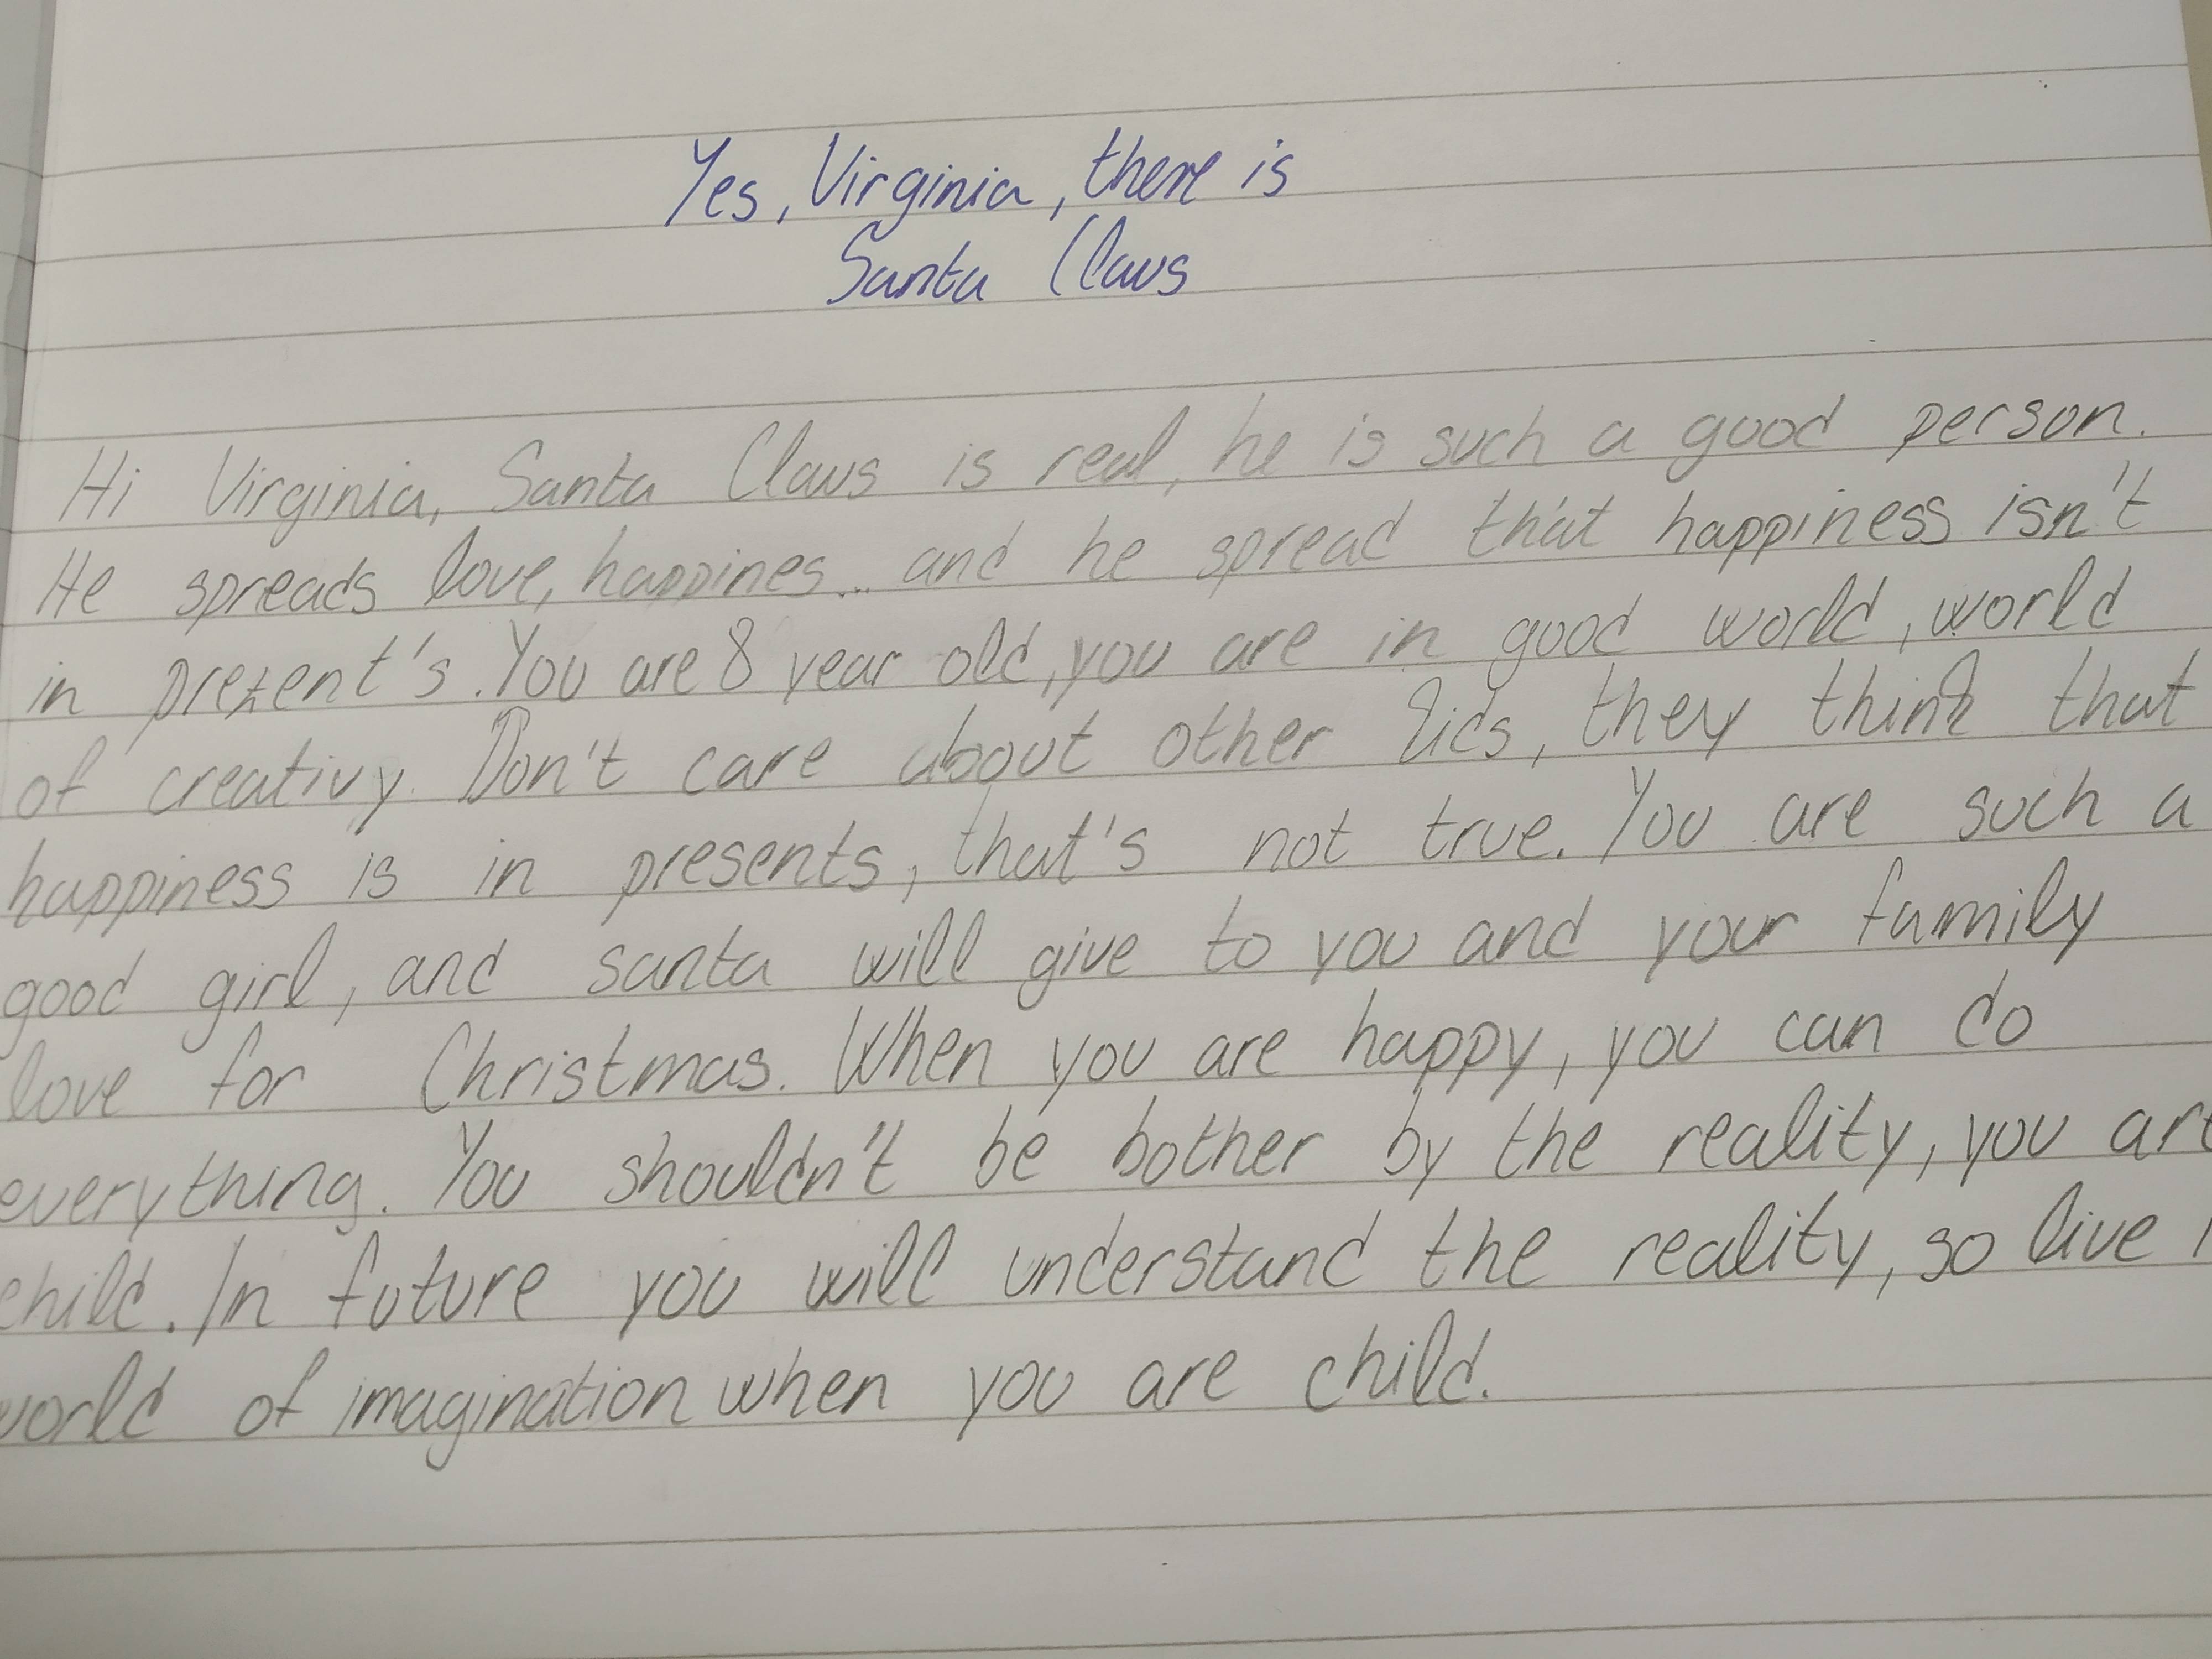 Yes, Virginia, there is
Santa Claus
Hi Virginia, Santa Claus is real, he is such a good person.
He spreads love, happines... and he spread that happiness isn't
in prezent's. You are 8 year old, you are in good world, world
of creativy. Don't care about other kids, they think that
happiness is in presents, that's not true. You are such a
good girl, and santa will give to you and your family
love for Christmas. When you are happy, you can do
everything. You shouldn't be bother by the reality, you are
child. In future you will understand the reality, so live
world of imagination when you are child.